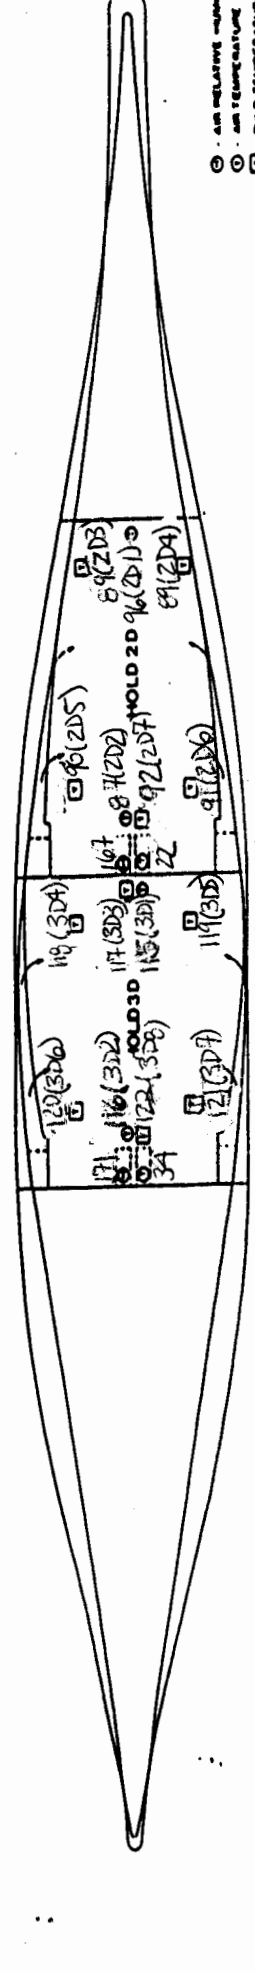 - AIR RELATIVE
- AIR TEMPERATURE
89(2D3)
96(2D1)
89(2D4)
HOLD 2D
90(2D5)
87(2D2)
92(2D7)
91(2D6)
167
22
118(3D4)
117(3D3)
115(3D1)
119(3D5)
HOLD 3D
120(3D6)
116(3D2)
122(3D8)
121(3D7)
171
34